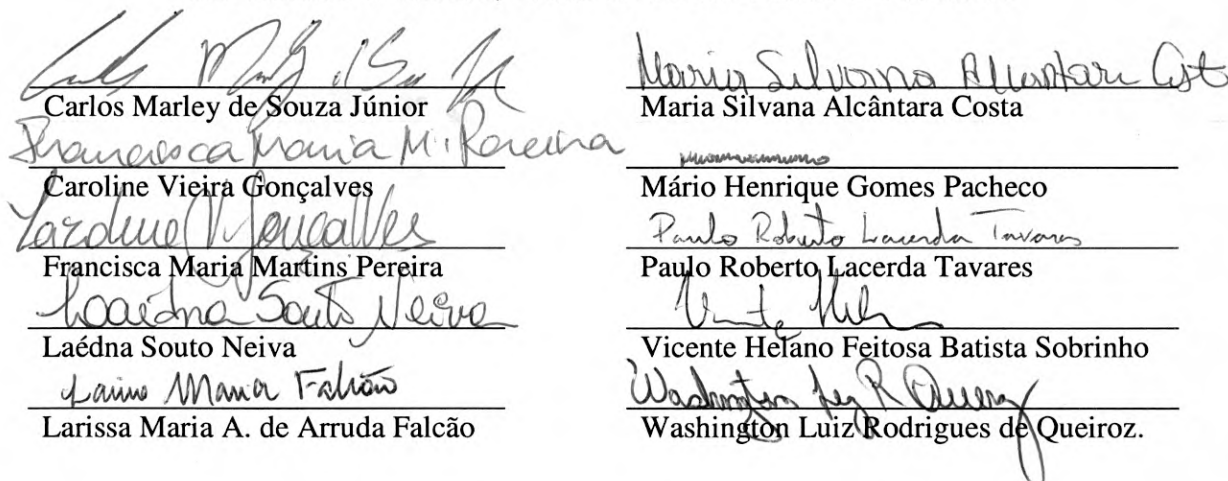 Carlos Marley de Souza Júnior
Francisca Maria M. Pereira
Caroline Vieira Gonçalves
Caroline V. Gonçalves
Francisca Maria Martins Pereira
Laédna Souto Neiva
Laédna Souto Neiva
Maria Falcão
Larissa Maria A. de Arruda Falcão
Maria Silvana Alcantara Cost
Maria Silvana Alcântara Costa
Mário Henrique Gomes Pacheco
Paulo Roberto Lacerda Tavares
Paulo Roberto Lacerda Tavares
Vicente Helano Feitosa Batista Sobrinho
Washington R Queiroz
Washington Luiz Rodrigues de Queiroz.